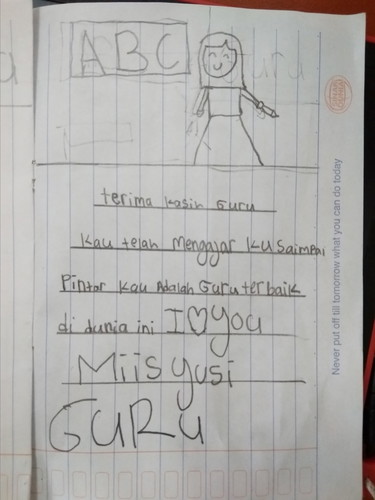 ABC
terima kasih Guru
kau telah Mengajar ku saimpai
Pintar kau Adalah Guru terbaik
di dunia ini I♡you
Miis yusi
GURU
Never put off till tomorrow what you can do today